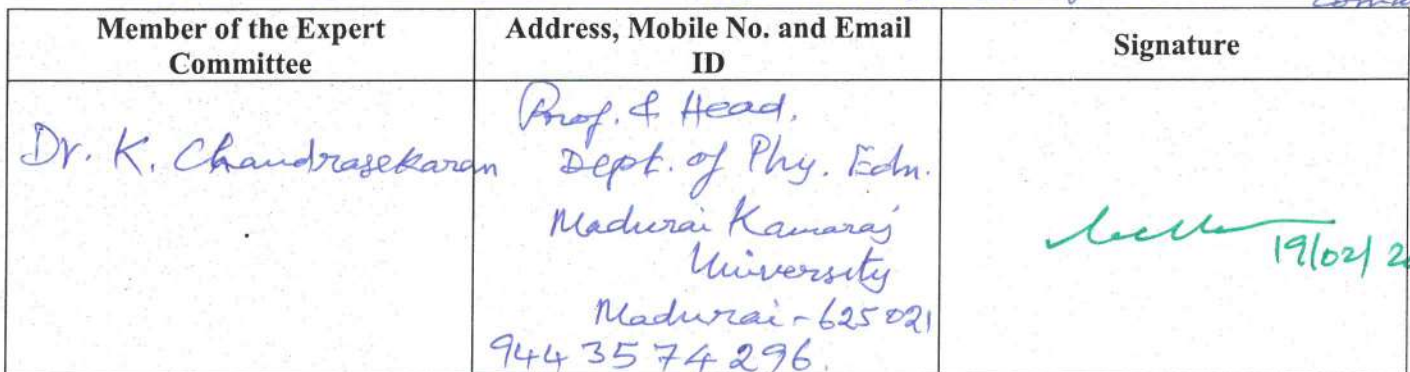 Member of the Expert
Committee
Address, Mobile No. and Email
ID
Signature
Dr. K. Chandrasekaran
Prof. & Head.
Dept. of Phy. Edn.
Madurai Kamaraj
University
Madurai - 625021
9443574296.
19/02/2